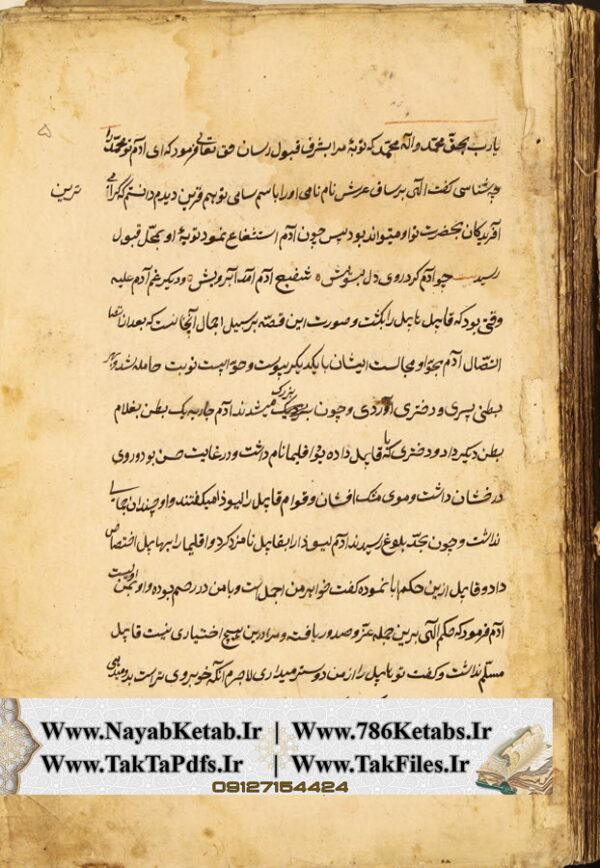 ۵
یارب بحق محمد و آله محمد که توبهٔ مرا بشرف قبول رسان حق تعالی فرمود که ای آدم تو محمد را
چه شناسی گفت الهی بر ساق عرش نام نامی او را باسم سامی تو هم قرین دیدم دانستم که گرامی
ترین
آفریدگان بحضرت تو او میتواند بود پس چون آدم استشفاع نمود توبهٔ او بمحل قبول
رسید چو آدم کرد روی دل بسویش شفیع آدم آمد آبرویش و دیگر غم آدم علیه
وقتی بود که قابیل هابیل را بکشت و صورت این قصه بر سبیل اجمال آنجا است که بعد از انقضا
اتصال آدم بحوا و مجالست ایشان با یکدیگر پیوست و حوا بیست نوبت حامله شد و بهر
بطنی پسری و دختری آوردی و چون بزرگ میشدند آدم جاریه یک بطن بغلام
بطن دیگر داد و دختری که با قابیل زاده بود اقلیما نام داشت و در غایت حسن بود و روی
درخشان داشت و موی مشک افشان و توام هابیل را لیوذا میگفتند و او چندان جمالی
نداشت و چون بحد بلوغ رسیدند آدم لیوذا را بقابیل نامزد کرد و اقلیما را بهابیل اختصاص
داد و قابیل ازین حکم ابا نموده گفت خواهر من اجمل است و با من در رحم بوده و او بمن اولیست
آدم فرمود که حکم الهی برین جمله عز صدور یافته و مرا درین هیچ اختیاری نیست قابیل
مسلم نداشت و گفت تو هابیل را از من دوستر میداری لاجرم آنکه خوبروی تراست بدو میدهی
Www.NayabKetab.Ir | Www.786Ketabs.Ir
Www.TakTaPdfs.Ir | Www.TakFiles.Ir
09127154424